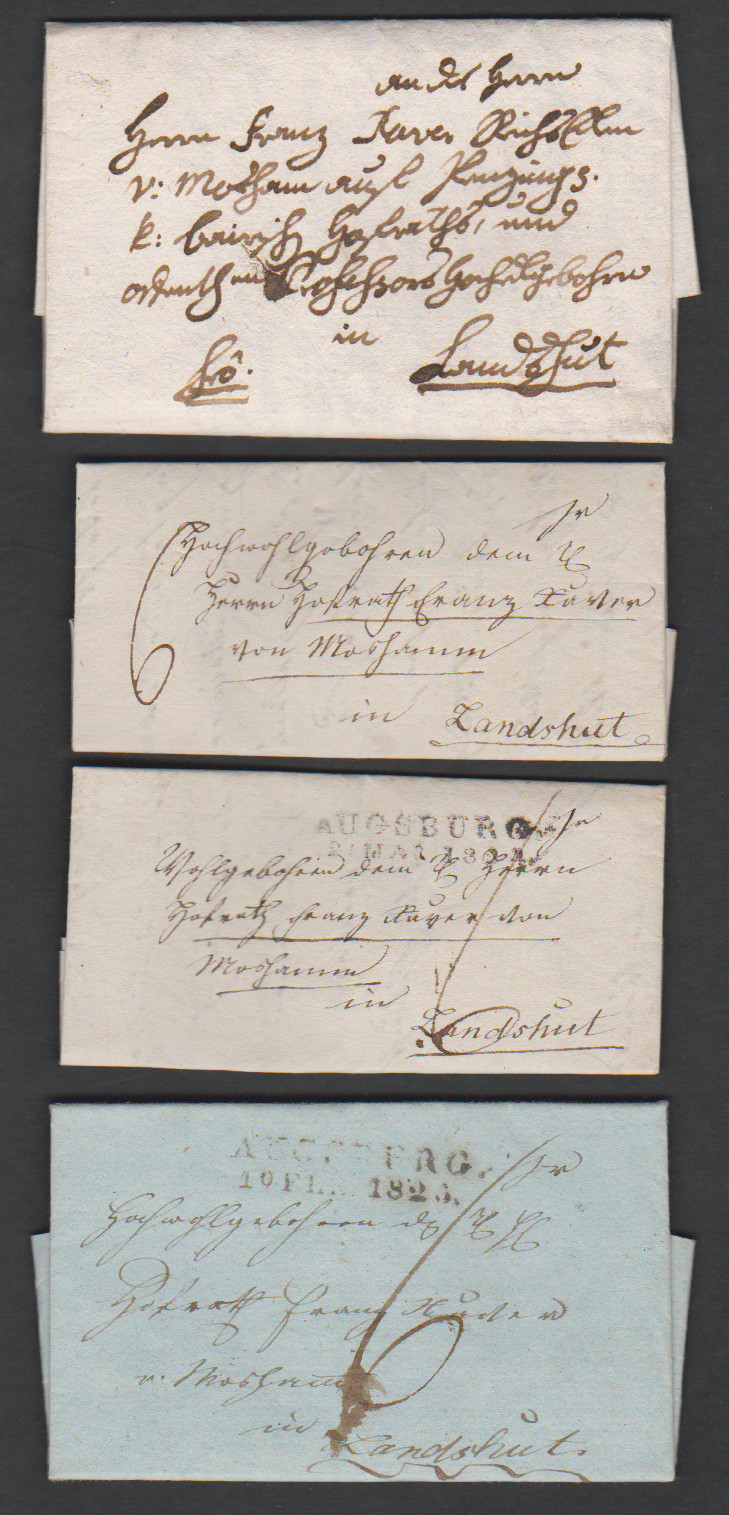 an des Herrn
Herrn Franz Xaver Reichs
v: Mosham auf
k: bairisch Hofraths, und
ordentlhen Professors Hochedelgebohren
in
frô. Landshut
Sr
6 Hochwohlgebohren dem
Herrn Hofrath Franz Xaver
von Moshamm
in Landshut
AUGSBURG
MAI 182
Sr
Wohlgebohren dem Herrn
Hofrath Franz Xaver von
Moshamm
in
Landshut
6
AUGSBURG.
10 FE 182
Sr
Hochwohlgebohren
Hofrath Franz Xaver
v. Moshamm
6
in
Landshut.